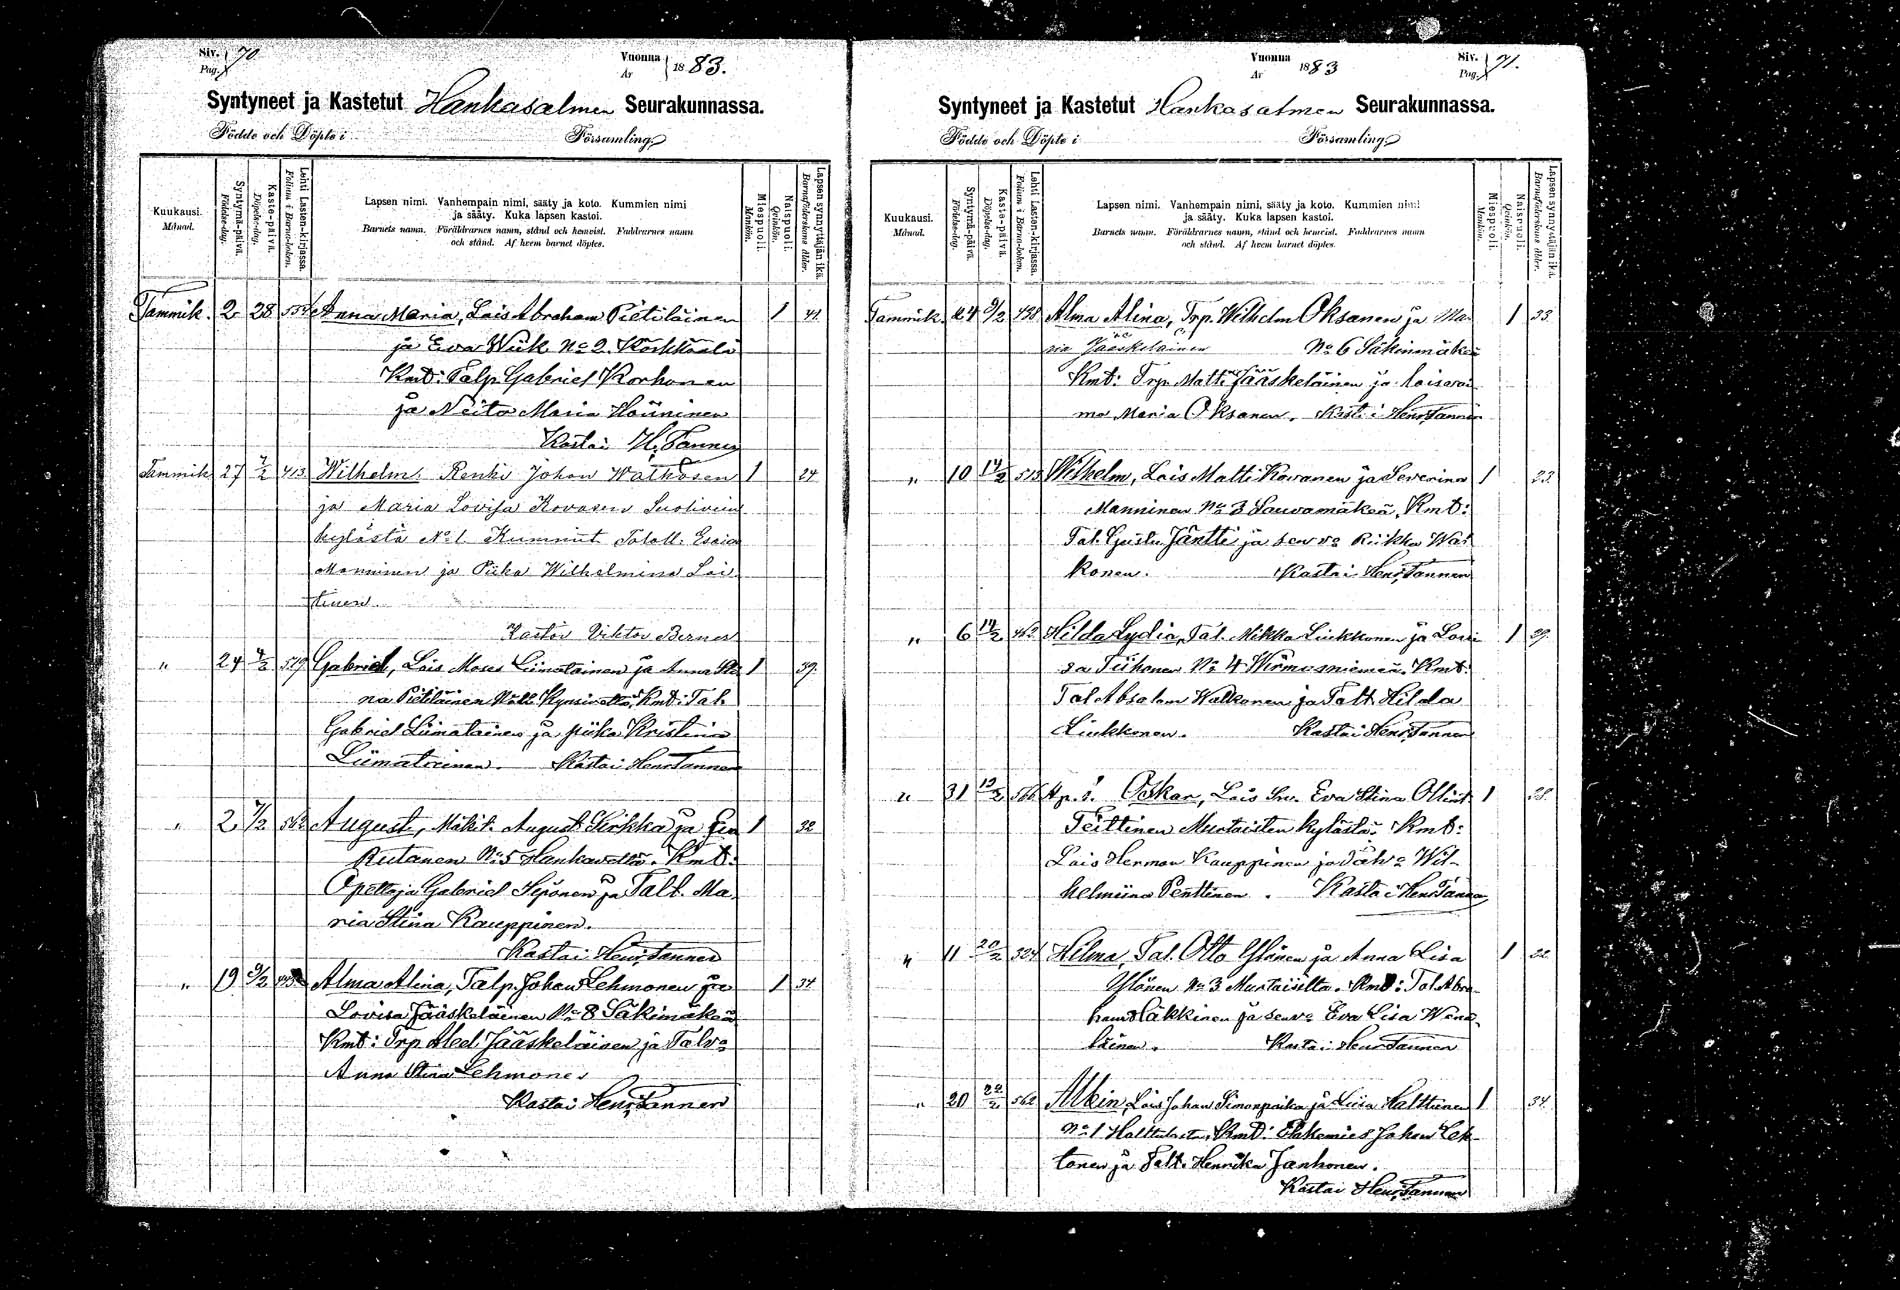 Siv. 70.
Pag.
Vuonna 1883.
År
Syntyneet ja Kastetut Hankasalmen Seurakunnassa.
Födde och Döpte i Församling.
Kuukausi.
Månad.
Syntymä-päivä.
Födelse-dag.
Kaste-päivä.
Döpelse-dag.
Lehti Lasten-kirjassa.
Folium i Barna-boken.
Lapsen nimi. Vanhempain nimi, sääty ja koto. Kummien nimi
ja sääty. Kuka lapsen kastoi.
Barnets namn. Föräldrarnes namn, stånd och hemvist. Faddrarnes namn
och stånd. Af hvem barnet döptes.
Miespuoli.
Mankön.
Naispuoli.
Qvinkön.
Lapsen synnyttäjän ikä.
Barnaföderskans ålder.
Tammik. 2. 28. Anna Maria, Lois Abraham Pietiläinen 1 41.
ja Eva Wiik No 2. Kärkkäälä
Kmt: Talp. Gabriel Korhonen
ja Neito Maria Häninen
Kastoi H. Tanner
Tammik 27 7/2 413. Wilhelm. Renki Johan Watkosen 1 24
ja Maria Lovisa Kovasen
kylästä No 1. Kummit Taloll. Esaia
Manninen ja Piika Wilhelmina Lai
tinen
Kastoi Viktor
„ 24 4/2 529 Gabriel, Lois Moses Liimatainen ja Anna Sti 1 39.
na Pietiläinen Kmt: Tal.
Gabriel Liimatainen ja piika Kristiina
Liimatainen. Kastoi Henr. Tanner
„ 2. 7/2 562 August, Mäkit. August Sirkka ja 1 32
Rutanen No 5 Hankavellä. Kmt:
Opettaja Gabriel Seponen ja Talt. Ma
ria Stina Kauppinen.
Kastoi Henr. Tanner
„ 19 9/2 Alma Alina, Talp. Johan Lehmonen ja 1 34
Lovisa Jääskeläinen No 8 Säkinmäkeä
Kmt: Trp. Abel Jääskeläinen ja Talva
Anna Stina Lehmonen
Kastoi Henr. Tanner
Vuonna 1883
År
Siv. 71.
Pag.
Syntyneet ja Kastetut Hankasalmen Seurakunnassa.
Födde och Döpte i Församling.
Kuukausi.
Månad.
Syntymä-päivä.
Födelse-dag.
Kaste-päivä.
Döpelse-dag.
Lehti Lasten-kirjassa.
Folium i Barna-boken.
Lapsen nimi. Vanhempain nimi, sääty ja koto. Kummien nimi
ja sääty. Kuka lapsen kastoi.
Barnets namn. Föräldrarnes namn, stånd och hemvist. Faddrarnes namn
och stånd. Af hvem barnet döptes.
Miespuoli.
Mankön.
Naispuoli.
Qvinkön.
Lapsen synnyttäjän ikä.
Barnaföderskans ålder.
Tammik. 9/2 438 Alma Alina, Trp. Wilhelm Oksanen ja Ma 1 33.
ria Jääskeläinen No 6 Säkinmäkeä
Kmt: Trp. Matti Jääskeläinen ja loisvai
mo Maria Oksanen. Kastoi Henr. Tanner
„ 10 14/2 513 Wilhelm, Lois Matti Kovanen ja Severina 1 23.
Manninen No 3 Sauvamäkeä, Kmt:
Tal. Gustu Jäntti ja sen va Riikka Wat
konen. Kastoi Henr. Tanner
„ 6 14/2 462 Hilda Lydia, Tal. Mikka Liukkonen ja Lovi 1 29.
sa Tiihonen No 4 Wirmusniemeä. Kmt:
Tal Absalom Watkonen ja Talt. Hilda
Liukkonen. Kastoi Henr. Tanner
„ 31 566 Ap. s. Oskar, Lois Eva Stina Ollint. 1 28.
Teittinen Murtoisten kylästä. Kmt:
Lois Herman Kauppinen ja Talva Wil-
helmiina Penttinen. Kastoi Henr. Tanner
„ 11 20/2 324 Hilma, Tal. Otto Ylönen ja Anna Lisa 1 22.
Ylönen No 3 Murtoisilta. Kmt: Tal Abra-
ham Häkkinen ja sen va Eva Lisa
läinen. Kastoi Henr. Tanner
„ 20 22/2 562 Albin, Lois Johan Simonpoika ja Liisa Halttunen 1 34.
No 1 Kmt: Johan Leh-
tonen ja Talt. Henrika Janhonen.
Kastoi Henr. Tanner